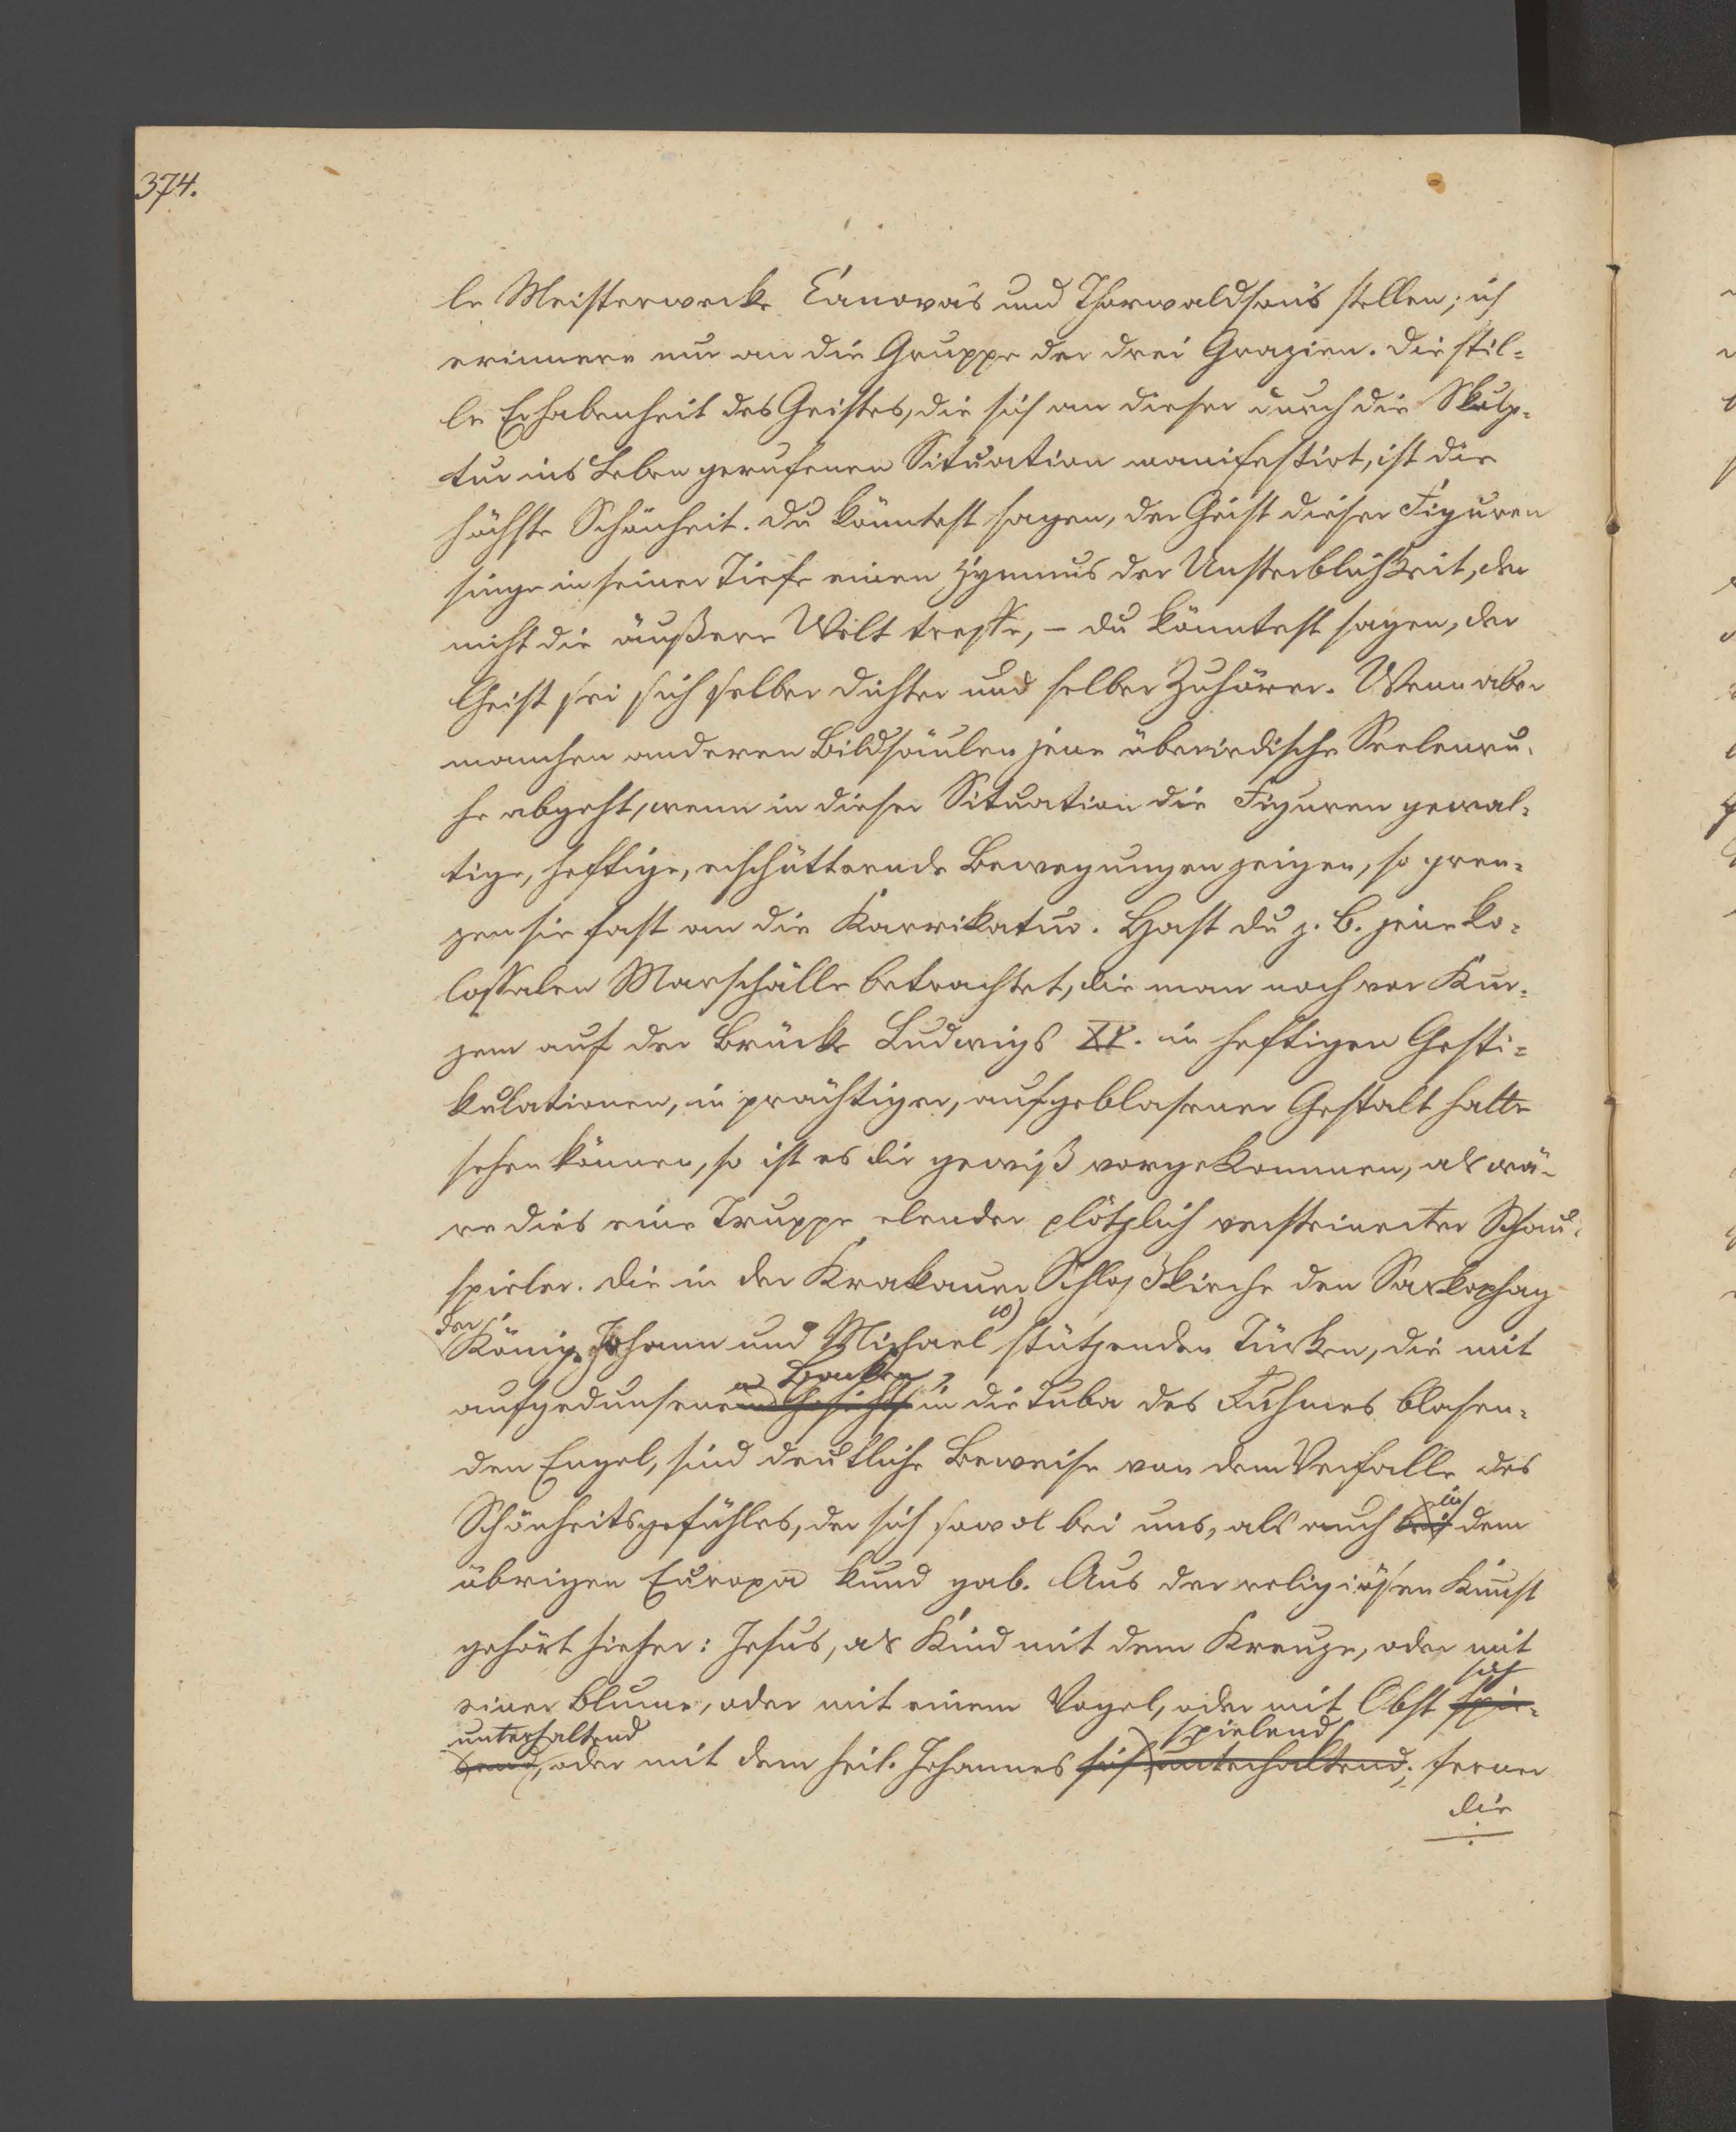 374.
le Meisterwerke Canova's und Thorwaldson's stellen; ich
erinnere nur an die Gruppe der drei Grazien. Die stil-
le Erhabenheit des Geistes, die sich an dieser durch die Skulp-
tur ins Leben gerufenen Situation manifestirt, ist die
höchste Schönheit. Du könntest sagen, der Geist dieser Figuren
singe in seiner Tiefe einen Hymnus der Unsterblichkeit, der
nicht die äußere Welt treffe, – du könntest sagen, der
Geist sei sich selber Dichter und selber Zuhörer. Wenn aber
manchen anderen Bildsäulen jene überirdische Seelenru-
he abgeht, wenn in dieser Situation die Figuren gewal-
tige, heftige, erschütternde Bewegungen zeigen, so gren-
zen sie fast an die Karrikatur. Hast du z. B. jene ko-
lossalen Marschälle betrachtet, die man noch vor Kur-
zem auf der Brücke Ludwigs XV. in heftigen Gesti-
kulationen, in prächtiger, aufgeblasener Gestalt hatte
sehen können, so ist es dir gewiß vorgekommen, als wä-
re dies eine Truppe elender plötzlich versteinerter Schau-
spieler. Die in der Krakauer Schloßkirche den Sarkophag
der Könige Johann und Michael 10) stützenden Türken, die mit
aufgedunsenen Backen in die Tuba des Ruhmes blasen-
den Engel, sind deutliche Beweise von dem Verfalle des
Schönheitsgefühles, der sich sowol bei uns, als auch bei in dem
übrigen Europa kund gab. Aus der religiösen Kunst
gehört hieher: Jesus, als Kind mit dem Kreuze, oder mit
einer Blume, oder mit einem Vogel, oder mit Obst spie- sich
lend unterhaltend, oder mit dem heil. Johannes sich unterhaltend spielend; ferner
die